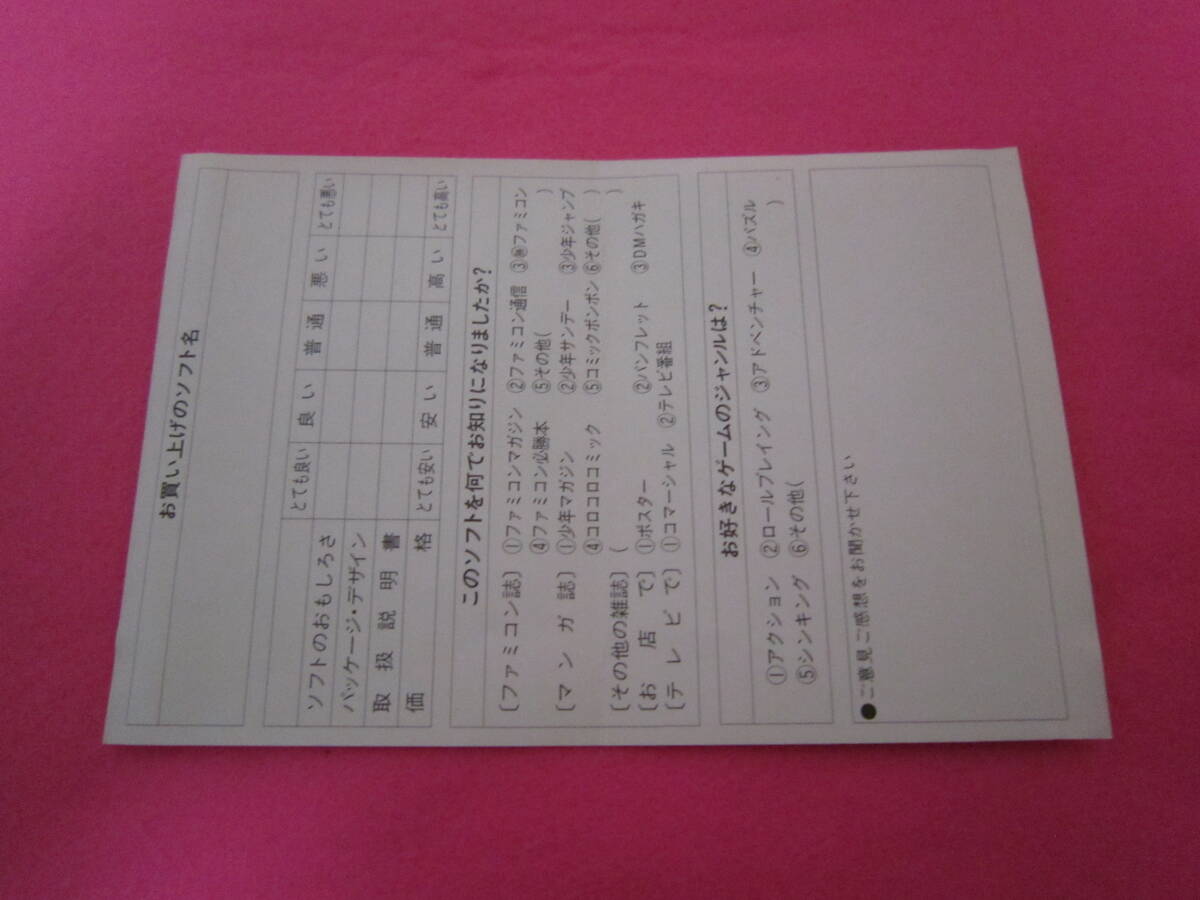 お買い上げのソフト名
とても良い 良い 普通 悪い とても悪い
ソフトのおもしろさ
パッケージ・デザイン
取扱説明書
価格 とても安い 安い 普通 高い とても高い
このソフトを何でお知りになりましたか?
〔ファミコン誌〕 ①ファミコンマガジン ②ファミコン通信 ③㊝ファミコン
④ファミコン必勝本 ⑤その他( )
〔マンガ誌〕 ①少年マガジン ②少年サンデー ③少年ジャンプ
④コロコロコミック ⑤コミックボンボン ⑥その他( )
〔その他の雑誌〕 ( )
〔お店で〕 ①ポスター ②パンフレット ③DMハガキ
〔テレビで〕 ①コマーシャル ②テレビ番組
お好きなゲームのジャンルは?
①アクション ②ロールプレイング ③アドベンチャー ④パズル
⑤シンキング ⑥その他( )
●ご意見ご感想をお聞かせ下さい